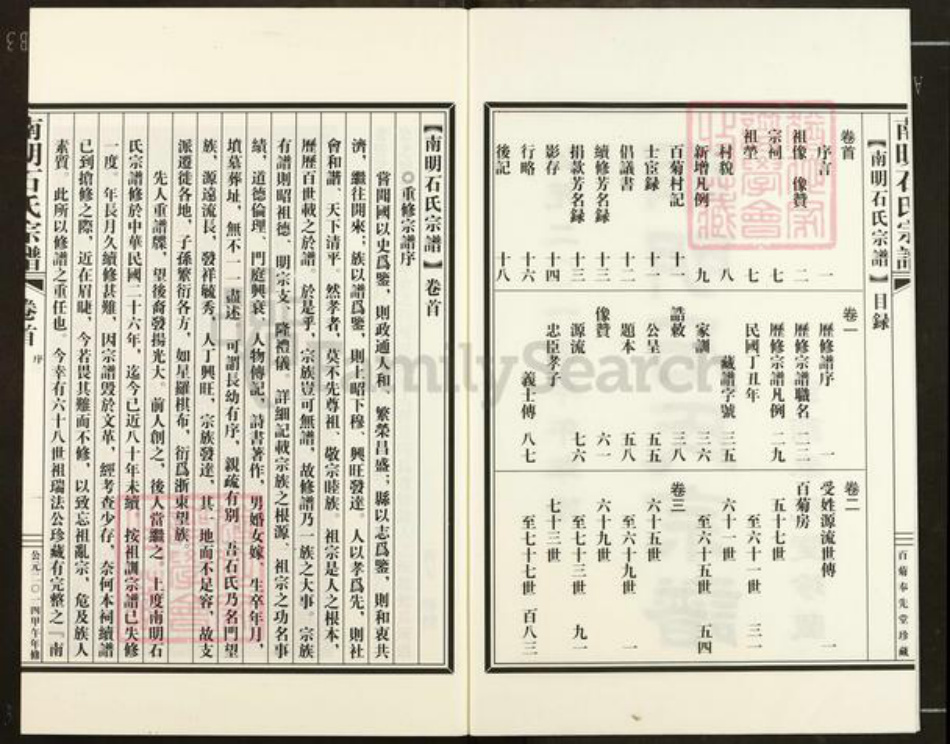 南明石氏宗譜
【南明石氏宗譜】目録
卷首
序言 一
祖像 像贊 二
宗祠 七
祖塋 七
村貌 八
新增凡例 九
百菊村記 十一
士宦録 十一
倡議書 十二
續修芳名録 十三
捐款芳名録 十三
影存 十四
行略 十六
後記 十八
卷一
歷修譜序 一
歷修宗譜職名 二二
歷修宗譜凡例 二九
民國丁丑年
藏譜字號 三五
家訓 三六
誥敕 三八
公呈 五五
題本 五八
像贊 六一
源流 七六
忠臣孝子
義士傳 八七
卷二
受姓源流世傳 一
百菊房
五十七世
至六十一世 三二
六十一世
至六十五世 五四
卷三
六十五世
至六十九世 一
六十九世
至七十三世 九一
七十三世
至七十七世 百八三
百菊奉先堂珍藏
【南明石氏宗譜】卷首
○重修宗譜序
嘗聞國以史爲鑒，則政通人和、繁榮昌盛；縣以志爲鑒，則和衷共
濟，繼往開來；族以譜爲鑒，則上昭下穆、興旺發達。人以孝爲先，則社
會和諧、天下清平。然孝者，莫不先尊祖、敬宗睦族。祖宗是人之根本，
歷歷百世載之於譜。於是乎，宗族豈可無譜，故修譜乃一族之大事。宗族
有譜則昭祖德、明宗支、隆禮儀。詳細記載宗族之根源、祖宗之功名事
績，道德倫理、門庭興衰、人物傳記、詩書著作，男婚女嫁，生卒年月，
墳墓葬址，無不一一盡述，可謂長幼有序，親疏有別。吾石氏乃名門望
族，源遠流長，發祥毓秀，人丁興旺，宗族發達，其一地而不足容，故支
派遷徙各地，子孫繁衍各方，如星羅棋布，衍爲浙東望族。
先人重譜牒，望後裔發揚光大。前人創之，後人當繼之。上度南明石
氏宗譜修於中華民國二十六年，迄今已近八十年未續。按祖訓宗譜已失修
一度。年長月久續修甚難，因宗譜毀於文革，經考查少存，奈何本祠續譜
已到搶修之際，近在眉睫，今若畏其難而不修，以致忘祖亂宗，危及族人
素質。此所以修譜之重任也。今幸有六十八世祖瑞法公珍藏有完整之『南
南明石氏宗譜
卷首
序
一
公元二〇一四甲午年修
FamilySearch